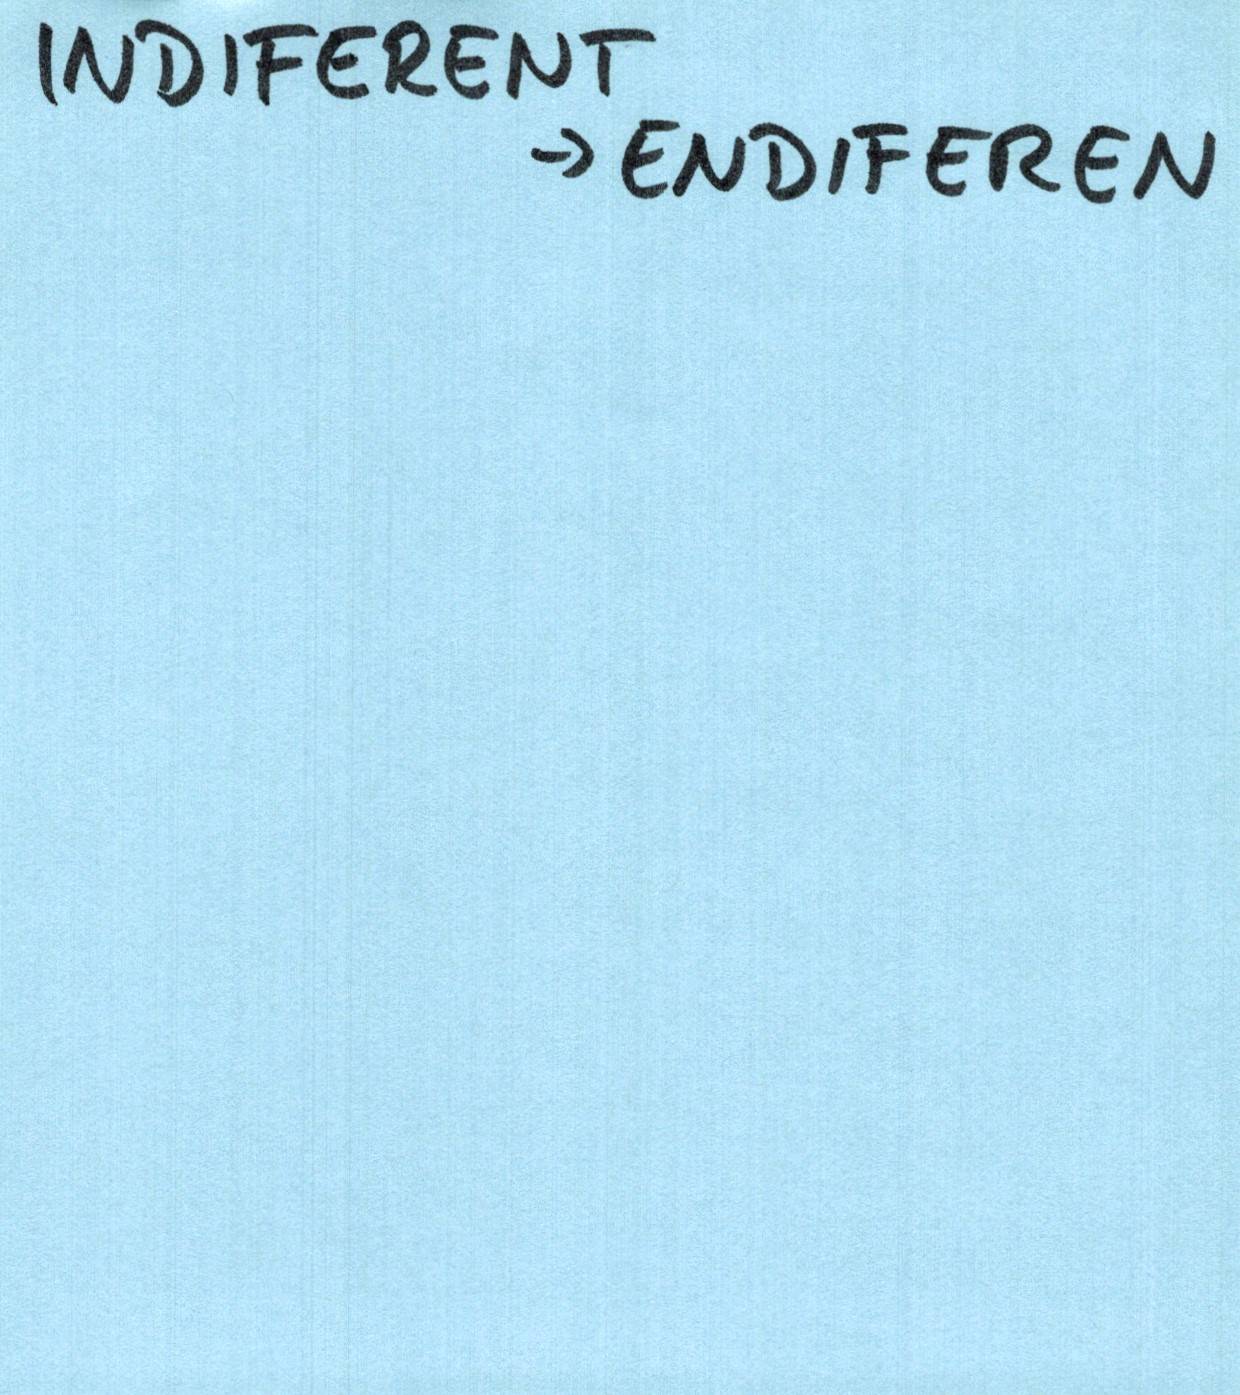 INDIFERENT
→ ENDIFEREN